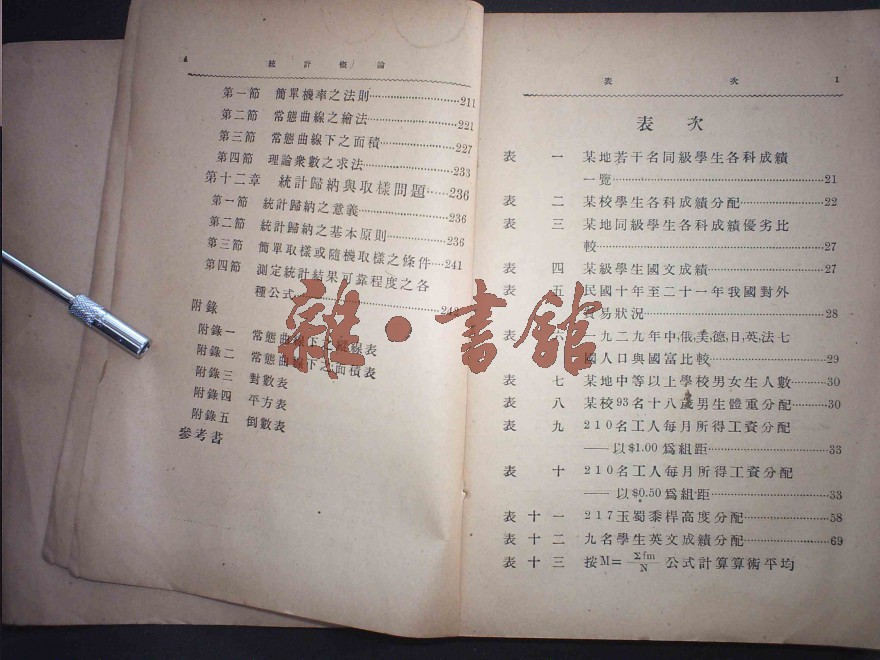 4 統計概論
第一節 簡單機率之法則……211
第二節 常態曲線之繪法……221
第三節 常態曲線下之面積……227
第四節 理論衆數之求法……233
第十二章 統計歸納與取樣問題……236
第一節 統計歸納之意義……236
第二節 統計歸納之基本原則……236
第三節 簡單取樣或隨機取樣之條件……241
第四節 測定統計結果可靠程度之各
種公式……242
附錄
附錄一 常態曲線下之縱線表
附錄二 常態曲線下之面積表
附錄三 對數表
附錄四 平方表
附錄五 倒數表
參考書
表次 1
表次
表一 某地若干名同級學生各科成績
一覽……21
表二 某校學生各科成績分配……22
表三 某地同級學生各科成績優劣比
較……27
表四 某級學生國文成績……27
表五 民國十年至二十一年我國對外
貿易狀況……28
表六 一九二九年中,俄,美,德,日,英,法七
國人口與國富比較……29
表七 某地中等以上學校男女生人數……30
表八 某校93名十八歲男生體重分配……30
表九 210名工人每月所得工資分配
——以$1.00爲組距……33
表十 210名工人每月所得工資分配
——以$0.50爲組距……33
表十一 217玉蜀黍桿高度分配……58
表十二 九名學生英文成績分配……69
表十三 按M=Σfm/N公式計算算術平均
雜·書舘